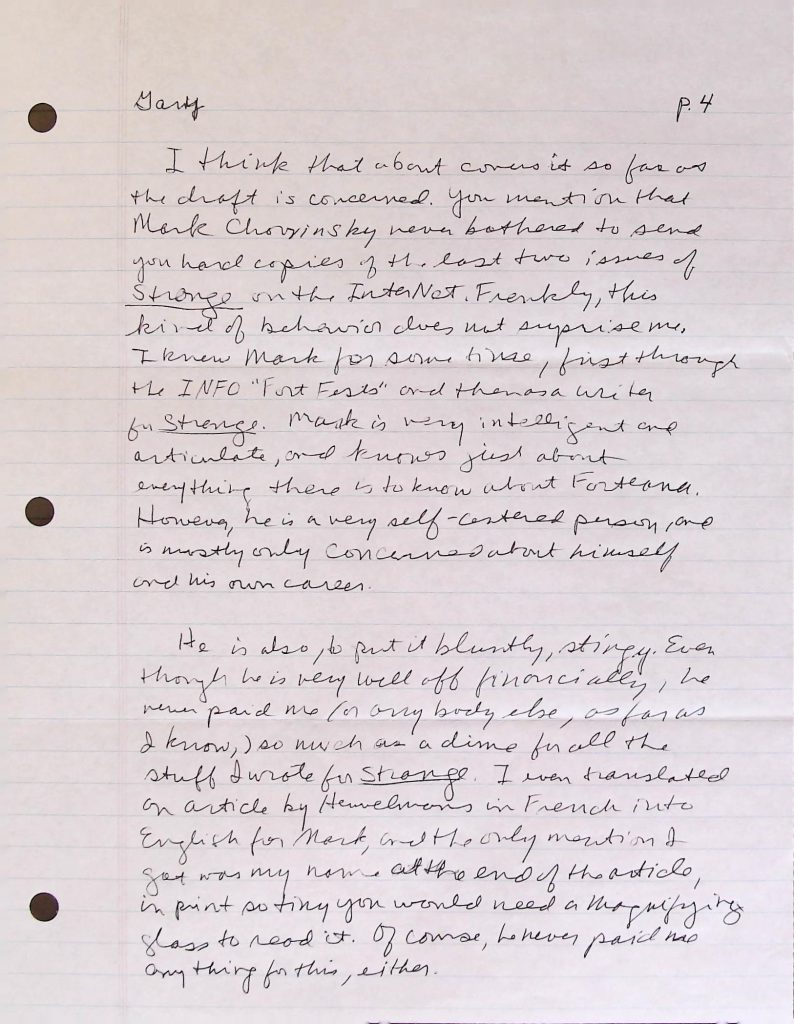 Gary p. 4
I think that about covers it so far as
the draft is concerned. You mention that
Mark Chorvinsky never bothered to send
you hard copies of the last two issues of
Strange on the InterNet. Frankly, this
kind of behavior does not surprise me.
I knew Mark for some time, first through
the INFO "Fort Fests" and then as a writer
for Strange. Mark is very intelligent and
articulate, and knows just about
everything there is to know about Forteana.
However, he is a very self-centered person, and
is mostly only concerned about himself
and his own career.
He is also, to put it bluntly, stingy. Even
though he is very well off financially, he
never paid me (or any body else, as far as
I know,) so much as a dime for all the
stuff I wrote for Strange. I even translated
an article by Heuvelmans in French into
English for Mark, and the only mention I
got was my name at the end of the article,
in print so tiny you would need a magnifying
glass to read it. Of course, he never paid me
any thing for this, either.